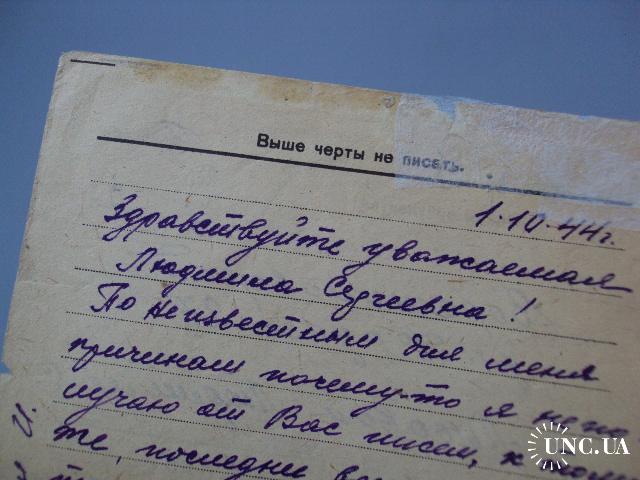 Выше черты не писать.
1.IV.44г.
Здравствуйте уважаемая
Людмила Сергеевна!
По неизвестным для меня
причинам почему-то я непо
лучаю от Вас писем, к
те, последни
UNC.UA